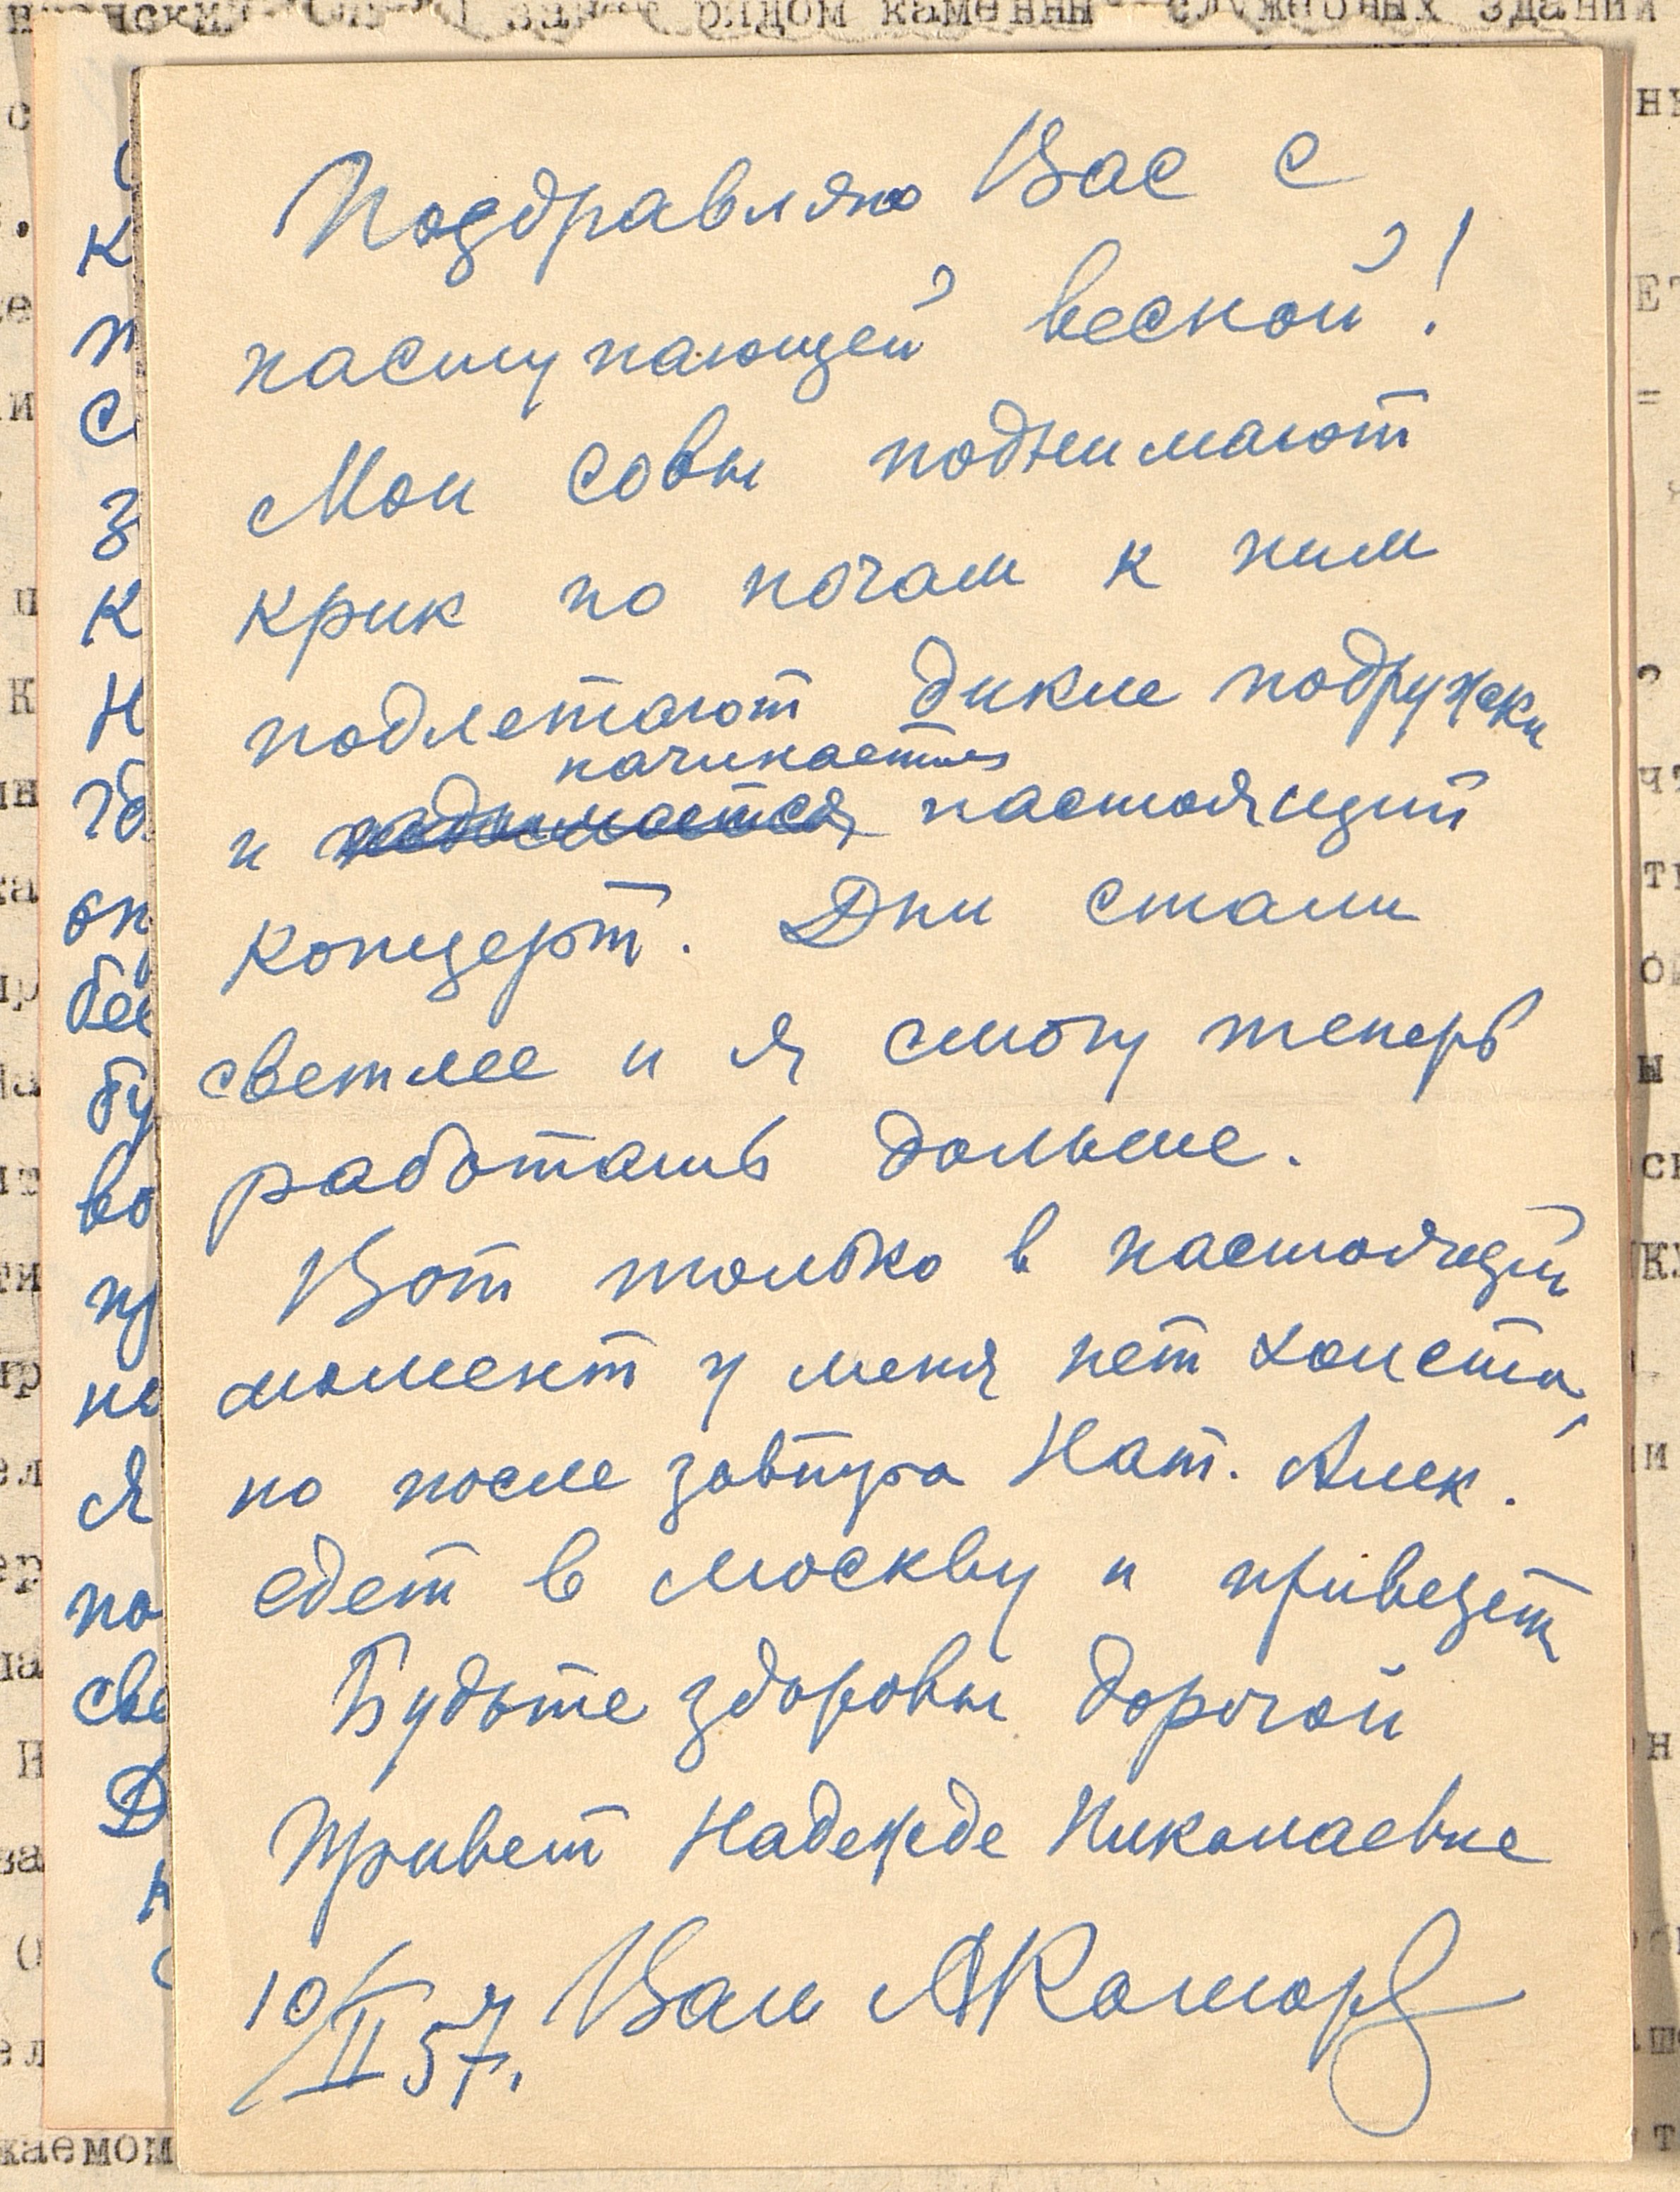 Поздравляю Вас с
наступающей весной!
Мои совы поднимают
крик по ночам к ним
подлетают дикие подружки
начинается
и настоящий
концерт. Дни стали
светлее и я смогу теперь
работать дольше.
Вот только в настоящий
момент у меня нет холста,
но после завтра Нат. Алек.
едет в Москву и привезет
Будьте здоровы дорогой
Привет Надежде Николаевне
10/II 57. Ваш АКомаров